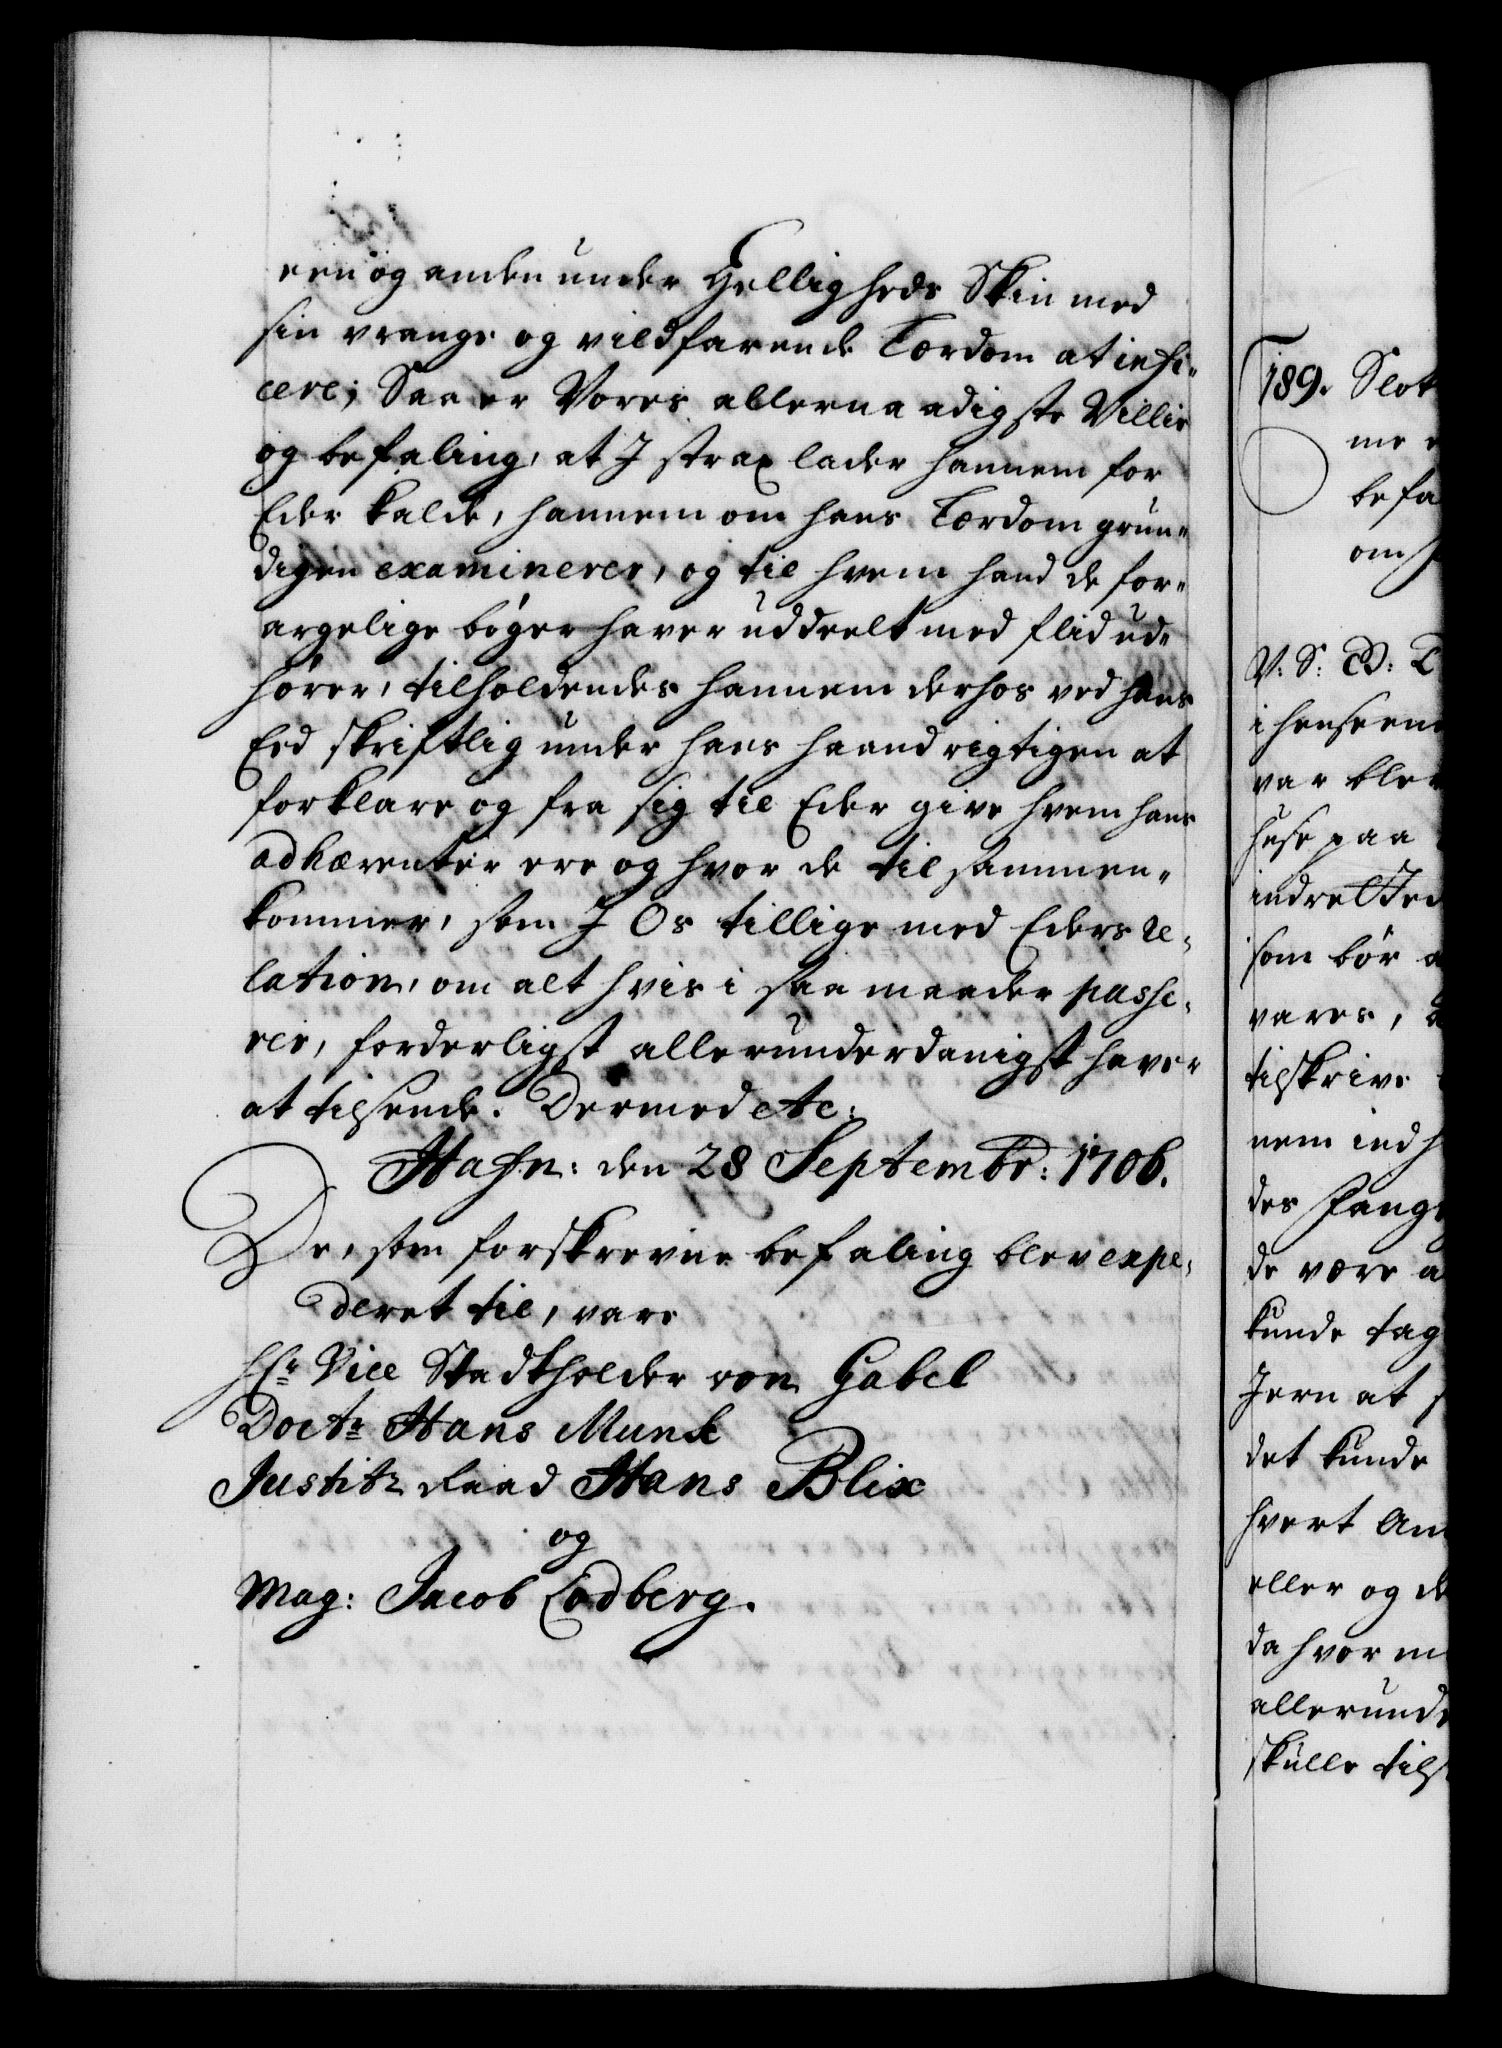 een og anden under Helligheds Skin med
sin vrange og vildfarende Lærdom at infi„
cere; Saa er Vores allernaadigste Villie
og befaling, at I strax lader hannem for
Eder kalde, hannem om hans Lærdom grun„
digen examinerer, og til hvem hand de for„
argelige bøger haver uddeelt med flid ud„
hører, tilholdendes hannem derhos ved hans
Eed skriftlig under hans haand rigtigen at
forklare og fra sig til Eder give hvem hans
adhærenter ere og hvor de til sammen„
kommer, som I Os tillige med Eders re„
lation, om alt hvis i saa maader passe„
rer, forderligst allerunderdanigst haver
at tilsende. Dermed etc:
Hafn: den 28 Septembr: 1706.
De, som forskrevne befaling blev expe„
deret til, vare
Hr Vice Stadtholder von Gabel
Doctr Hans Munk
Justitz Raad Hans Blix
og
Mag: Jacob Lodberg.
189. Slot
me
befa
om
V: S: G: T
i henseen
var blev
huse paa
indretted
som bør
vares,
tilskrive
nem indh
des fang
de være a
kunde tag
Jern at
det kunde
hvert Am
eller og de
da hvor m
allerund
skulle tils